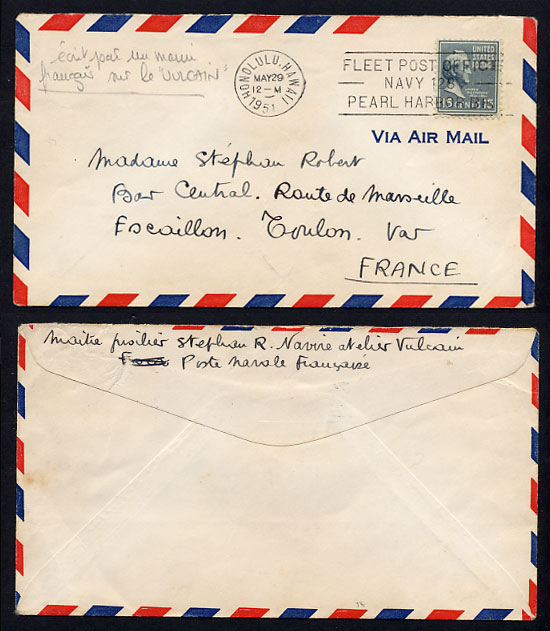 écrit par un marin
français sur le "VULCAIN"
HONOLULU, HAWAII
MAY 29
12-M
1951
FLEET POST OFFICE
NAVY 128
PEARL HARBOR H
UNITED STATES
15
VIA AIR MAIL
Madame Stéphan Robert
Bar Central. Route de Marseille
Escaillon. Toulon. Var
FRANCE
Maitre fusilier Stephan R. Navire atelier Vulcain
Poste navale Française